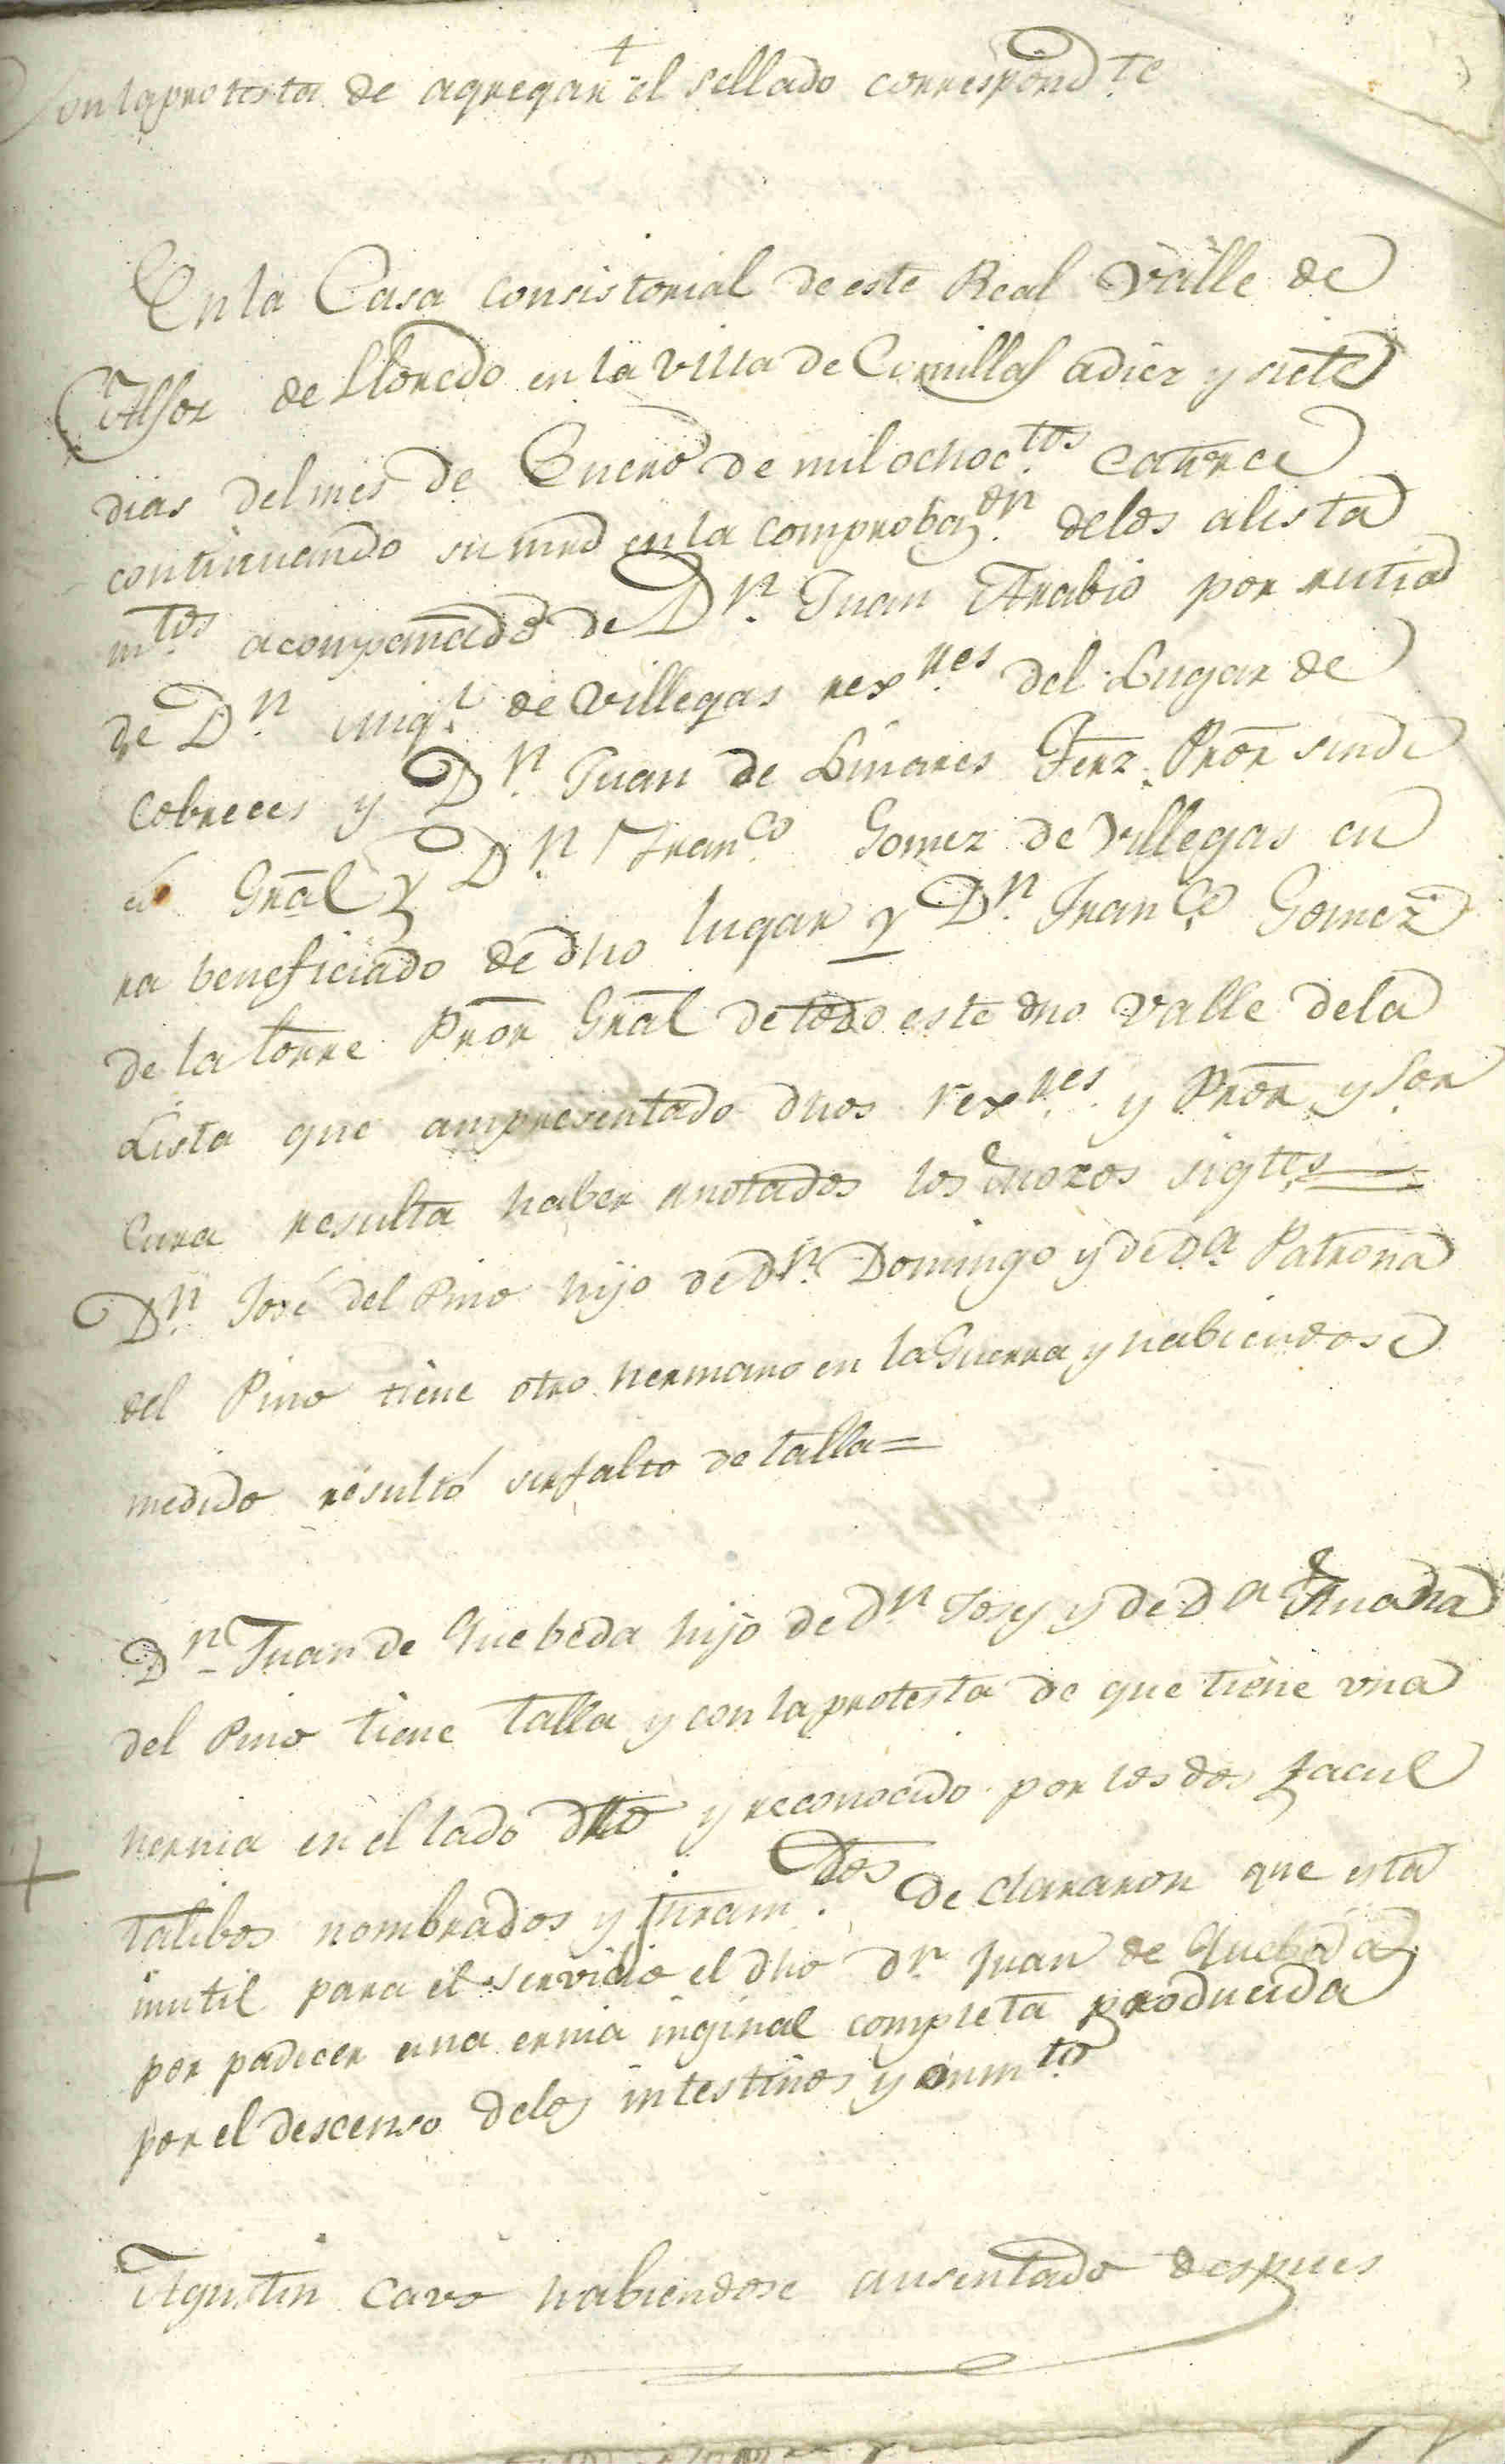 Con la protesta de agregar el sellado correspond.te
En la Casa consistorial de este Real Valle de
Alfoz de Lloredo en la villa de Comillas a diez y siete
dias del mes de Enero de mil ochoc.tos catorce
continuando su mrd en la comprobaz.on de los alista
m.tos acompañado de D.n Juan Arabio por
de D.n Mig.l de Villegas rex.nes del Lugar de
Cobreces y D.n Juan de Linares Ferz. Pror sindi
co Gral y D.n Fran.co Gomez de Villegas cu
ra beneficiado de dho lugar y D.n Fran.co Gomez
de la torre Pror Gral de todo este dho Valle de la
Lista que an presentado dhos rex.nes y Pror y S.or
Cura resulta haber anotados los mozos sigtes
D.n José del Pino hijo de d.n Domingo y de d.a Patrona
del Pino tiene otro hermano en la Guerra y habiendose
medido resultó ser falto de talla=
D.n Juan de Quebeda hijo de d.n Josef y de d.a
del Pino tiene talla y con la protesta de que tiene una
hernia en el lado dro y reconocido por los dos facul
tatibos nombrados y juram.dos declararon que está
inutil para el servicio el dho d.n Juan de Quebeda
por padecer una ernia inginal completa producida
por el descenso de los intestinos y
Agustin Cavo habiendose ausentado despues